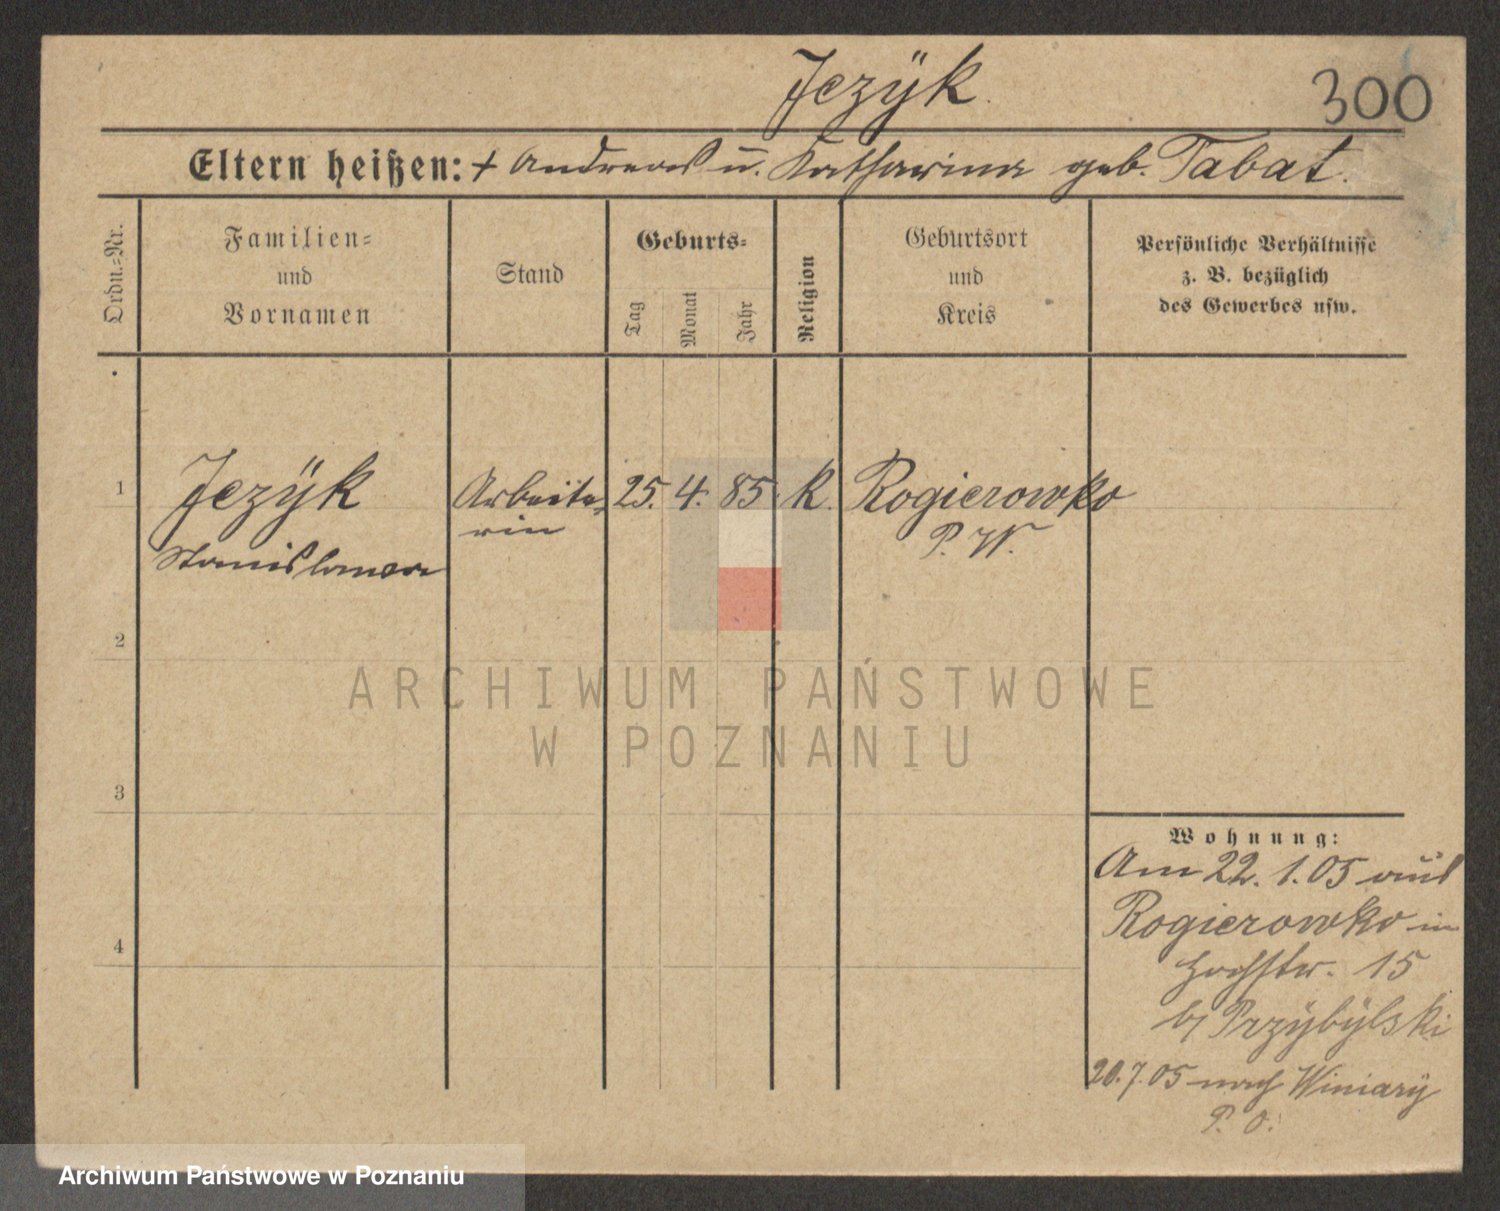 Jezÿk.
300
Eltern heißen: + Andreas u. Katharina geb. Tabat.
Ordn.-Nr.
Familien-
und
Vornamen
Stand
Geburts-
Tag
Monat
Jahr
Religion
Geburtsort
und
Kreis
Persönliche Verhältnisse
z. B. bezüglich
des Gewerbes usw.
1
Jezÿk
Stanislawa
Arbeite-
rin
25. 4. 85. K.
Rogierowko
P. W.
2
ARCHIWUM PAŃSTWOWE
W POZNANIU
3
4
Wohnung:
Am 22. 1. 05 aus
Rogierowko in
Hochstr. 15
b/ Przÿbÿlski
20. 7. 05 nach Winiarÿ
P. O.
Archiwum Państwowe w Poznaniu